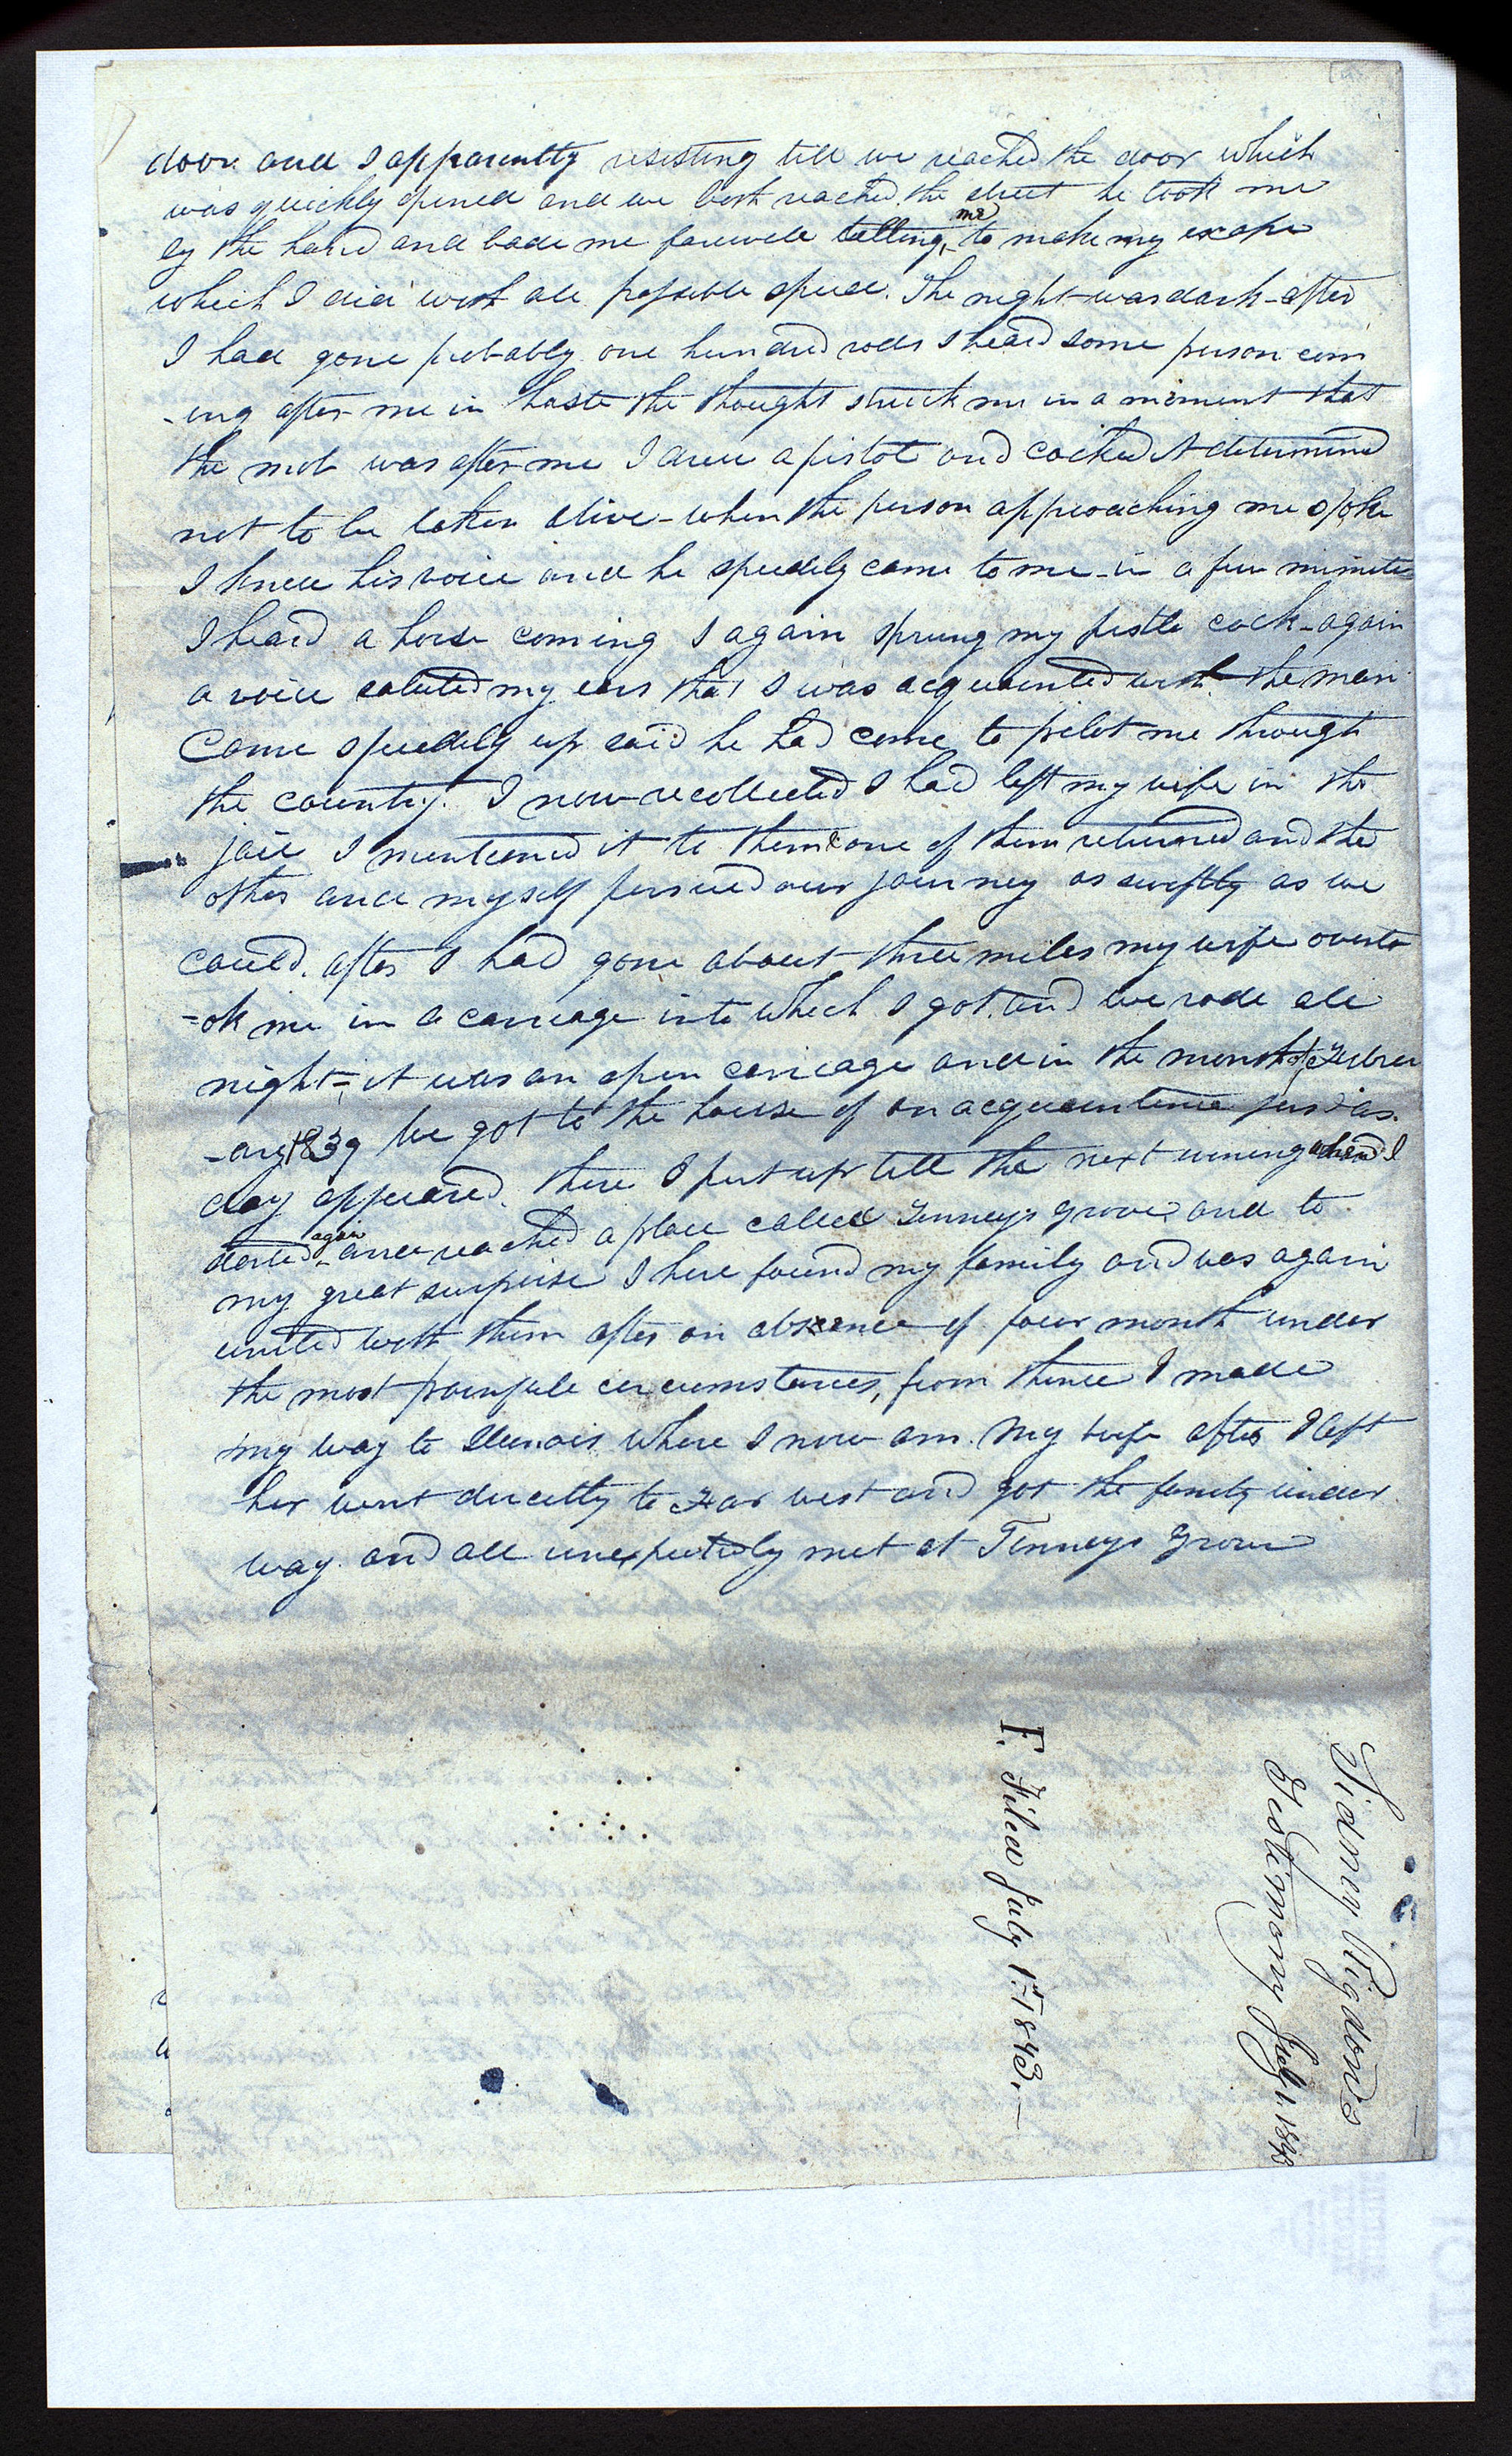 door. and I apparently resisting till we reached the door which
was quickly opened and we both reached the street he took me
by the hand and bade me farewell telling me to make my escape
which I did with all possible speed. The night was dark after
I had gone probably one hundred rods I heard some person com
-ing after me in haste the thought struck me in a moment that
the mob was after me I drew a pistol and cocked it determined
not to be taken alive - when the person approaching me spoke
I knew his voice and he speedily came to me - in a few minutes
I heard a horse coming I again sprung my pistle cock - again
a voice saluted my ears that I was acquainted with the man
Came speedily up said he had come to pilot me through
the country. I now recollected I had left my wife in the
jail I mentioned it to them & one of them returned and the
other and myself persued our journey as swiftly as we
could. after I had gone about three miles my wife overto
=ok me in a carriage into which I got and we rode all
night - it was an open carriage and in the month of Febru
-ary 1839 We got to the house of an acquaintance just as
day appeared. there I put up till the next morning when I
started again and reached a place called Tenneys grove and to
my great surprise I here found my family and was again
united with them after an absence of four month under
the most painfull circumstances, from thence I made
my way to Illinois where I now am. My wife after I left
her went directly to Far west and got the family under
way. and all unexpectedly met at Tenneys Grove
F. Filed July 1st 1843.—
Sidney Rigdons
Testimony July 1. 1843